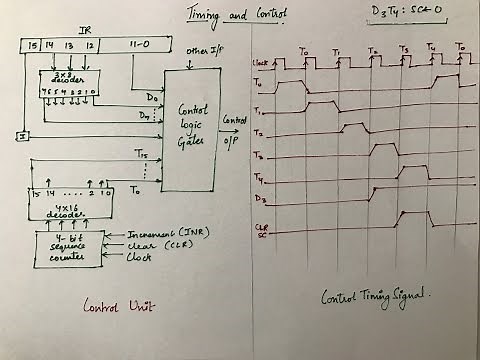 Timing and Control
D3T4 : SC←0
IR
15 14 13 12 11-0
other I/P
3x8
decoder
7 6 5 4 3 2 1 0
D0
D7
Control
Logic
Gates
Control
O/P
I
T15
T0
15 14 .... 2 1 0
4x16
decoder
4-bit
sequence
counter
Increment (INR)
clear (CLR)
Clock
Control Unit
T0 T1 T2 T3 T4 T0
Clock
T0
T1
T2
T3
T4
D3
CLR
SC
Control Timing Signal.